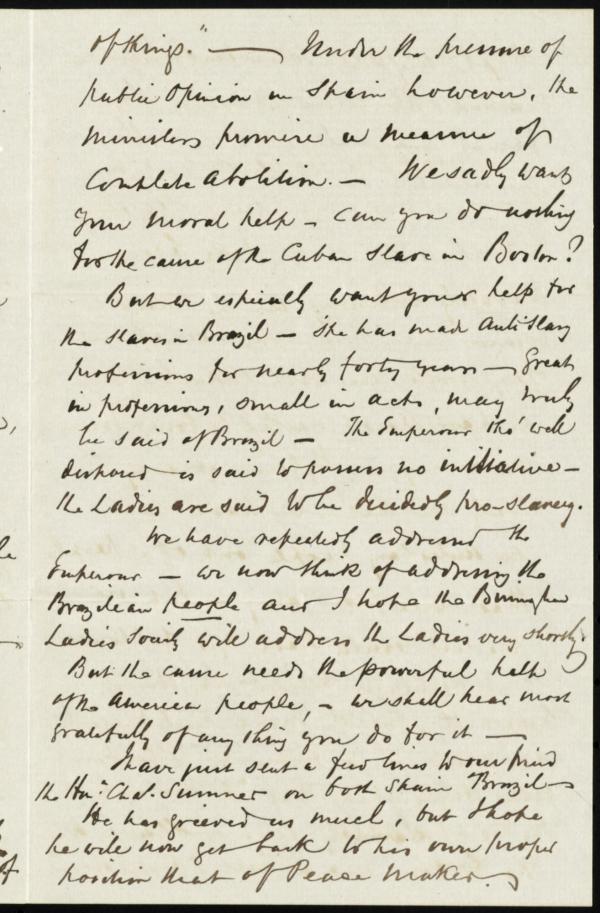 of things." — Under the pressure of
public opinion in Spain however, the
Ministers promise a measure of
Complete Abolition. — We sadly want
your moral help – can you do nothing
for the cause of the Cuban Slave in Boston?
But we especially want your help for
the slaves in Brazil – She has made Anti Slavy
professions for nearly forty years – Great
in professions, small in acts, may truly
be said of Brazil – The Emperour tho' well
disposed is said to possess no initiative –
the Ladies are said to be decidedly pro-slavery.
We have repeatedly addressed the
Emperour – we now think of addressing the
Brazilian people and I hope the Birmingham
Ladies Society will address the Ladies very shortly.
But the cause needs the powerful help
of the America people, – we shall hear most
gratefully of any thing you do for it —
I have just sent a few lines to our friend
the Hon: Cha.s Sumner on both Spain & Brazil –
He has grieved us much, but I hope
he will now get back to his own proper
position that of Peace Maker.